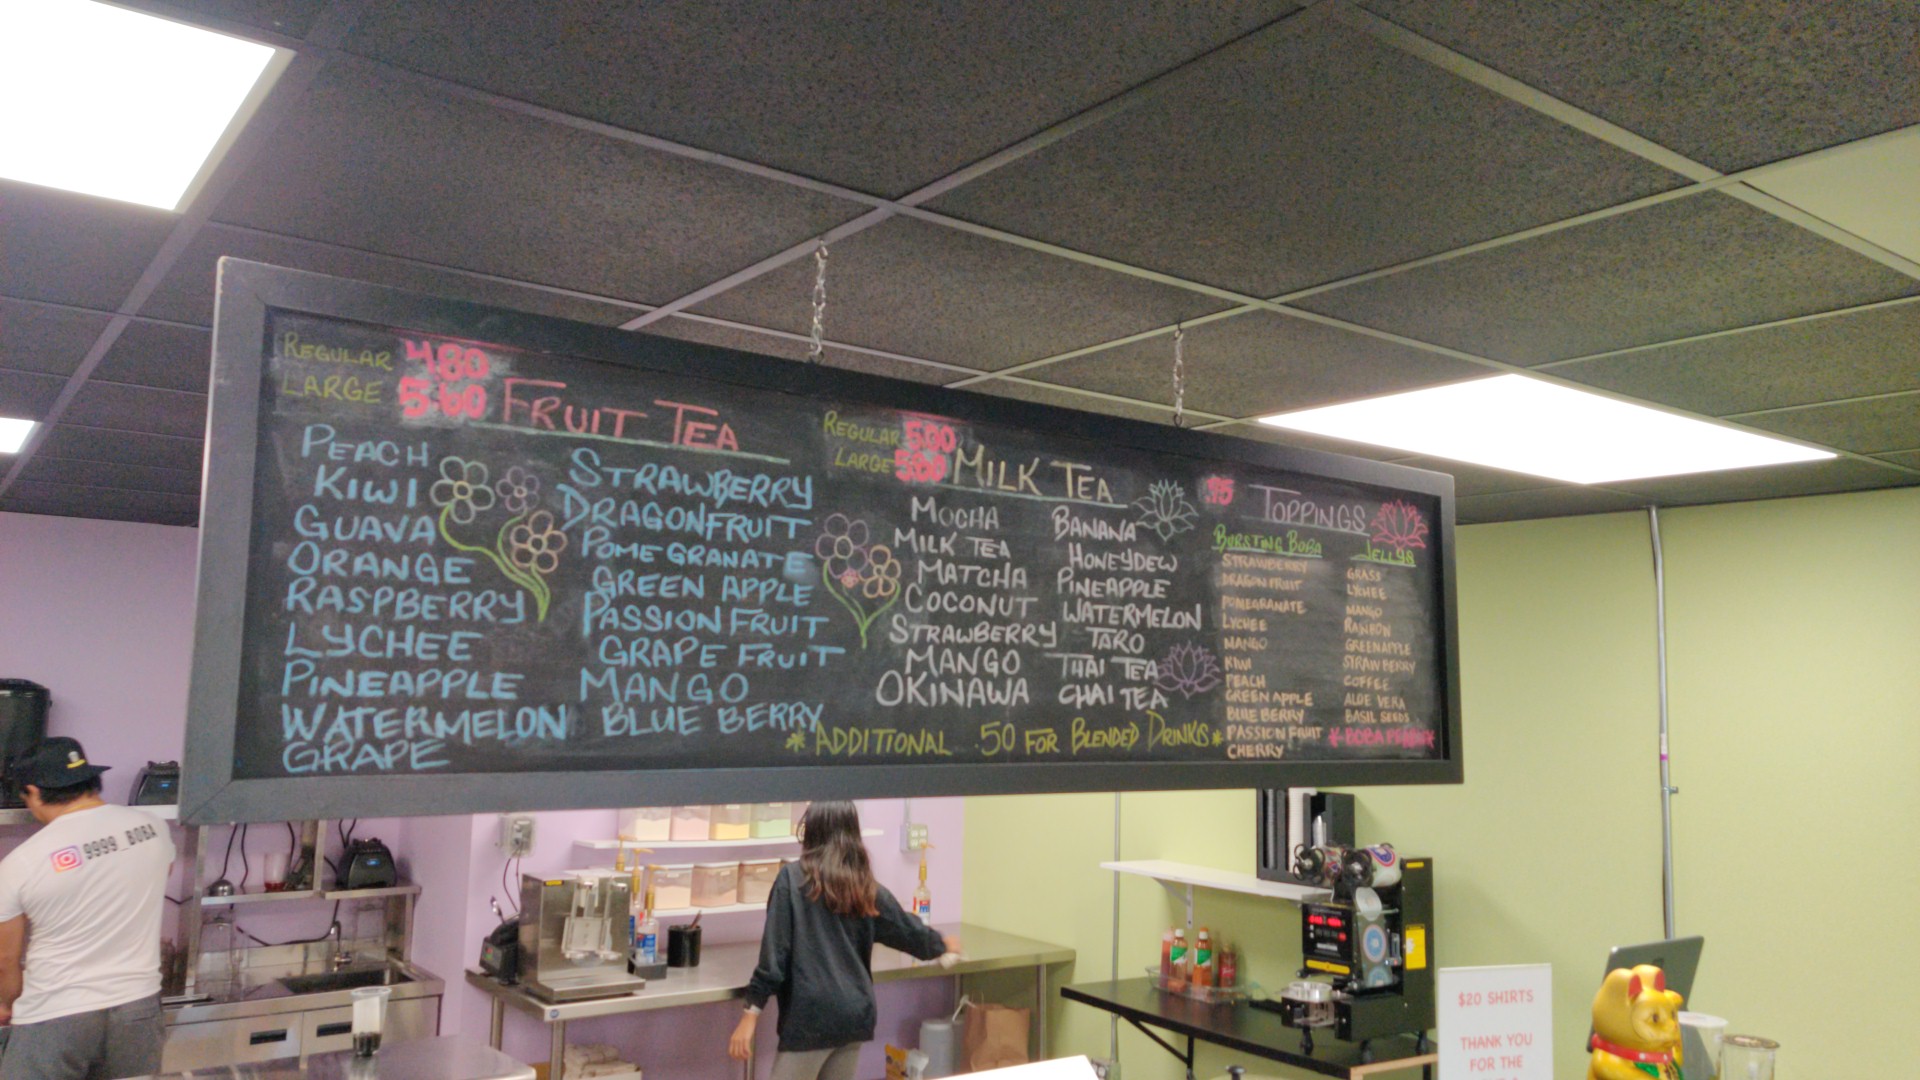 REGULAR 480
LARGE
FRUIT TEA
PEACH
KIWI
GUAVA
ORANGE
RASPBERRY
LYCHEE
PINEAPPLE
WATERMELON
GRAPE
STRAWBERRY
DRAGONFRUIT
POMEGRANATE
GREEN APPLE
PASSION FRUIT
GRAPE FRUIT
MANGO
BLUE BERRY
REGULAR 500
LARGE
MILK TEA
MOCHA
MILK TEA
MATCHA
COCONUT
STRAWBERRY
MANGO
OKINAWA
BANANA
HONEYDEW
PINEAPPLE
WATERMELON
TARO
THAI TEA
CHAI TEA
*ADDITIONAL .50 FOR BLENDED DRINKS*
TOPPINGS
BURSTING BOBA
STRAWBERRY
DRAGON FRUIT
POMEGRANATE
LYCHEE
MANGO
KIWI
PEACH
GREEN APPLE
BLUE BERRY
PASSION FRUIT
CHERRY
GRASS
LYCHEE
MANGO
RAINBOW
GREEN APPLE
STRAWBERRY
COFFEE
ALOE VERA
BASIL SEEDS
9999_BOBA
$20 SHIRTS
THANK YOU
FOR THE